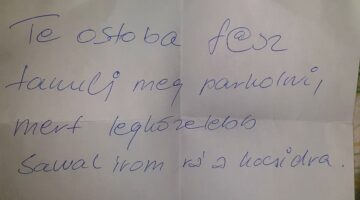 Te ostoba f@sz
tanulj meg parkolni,
mert legközelebb
Savval irom rá a kocsidra.